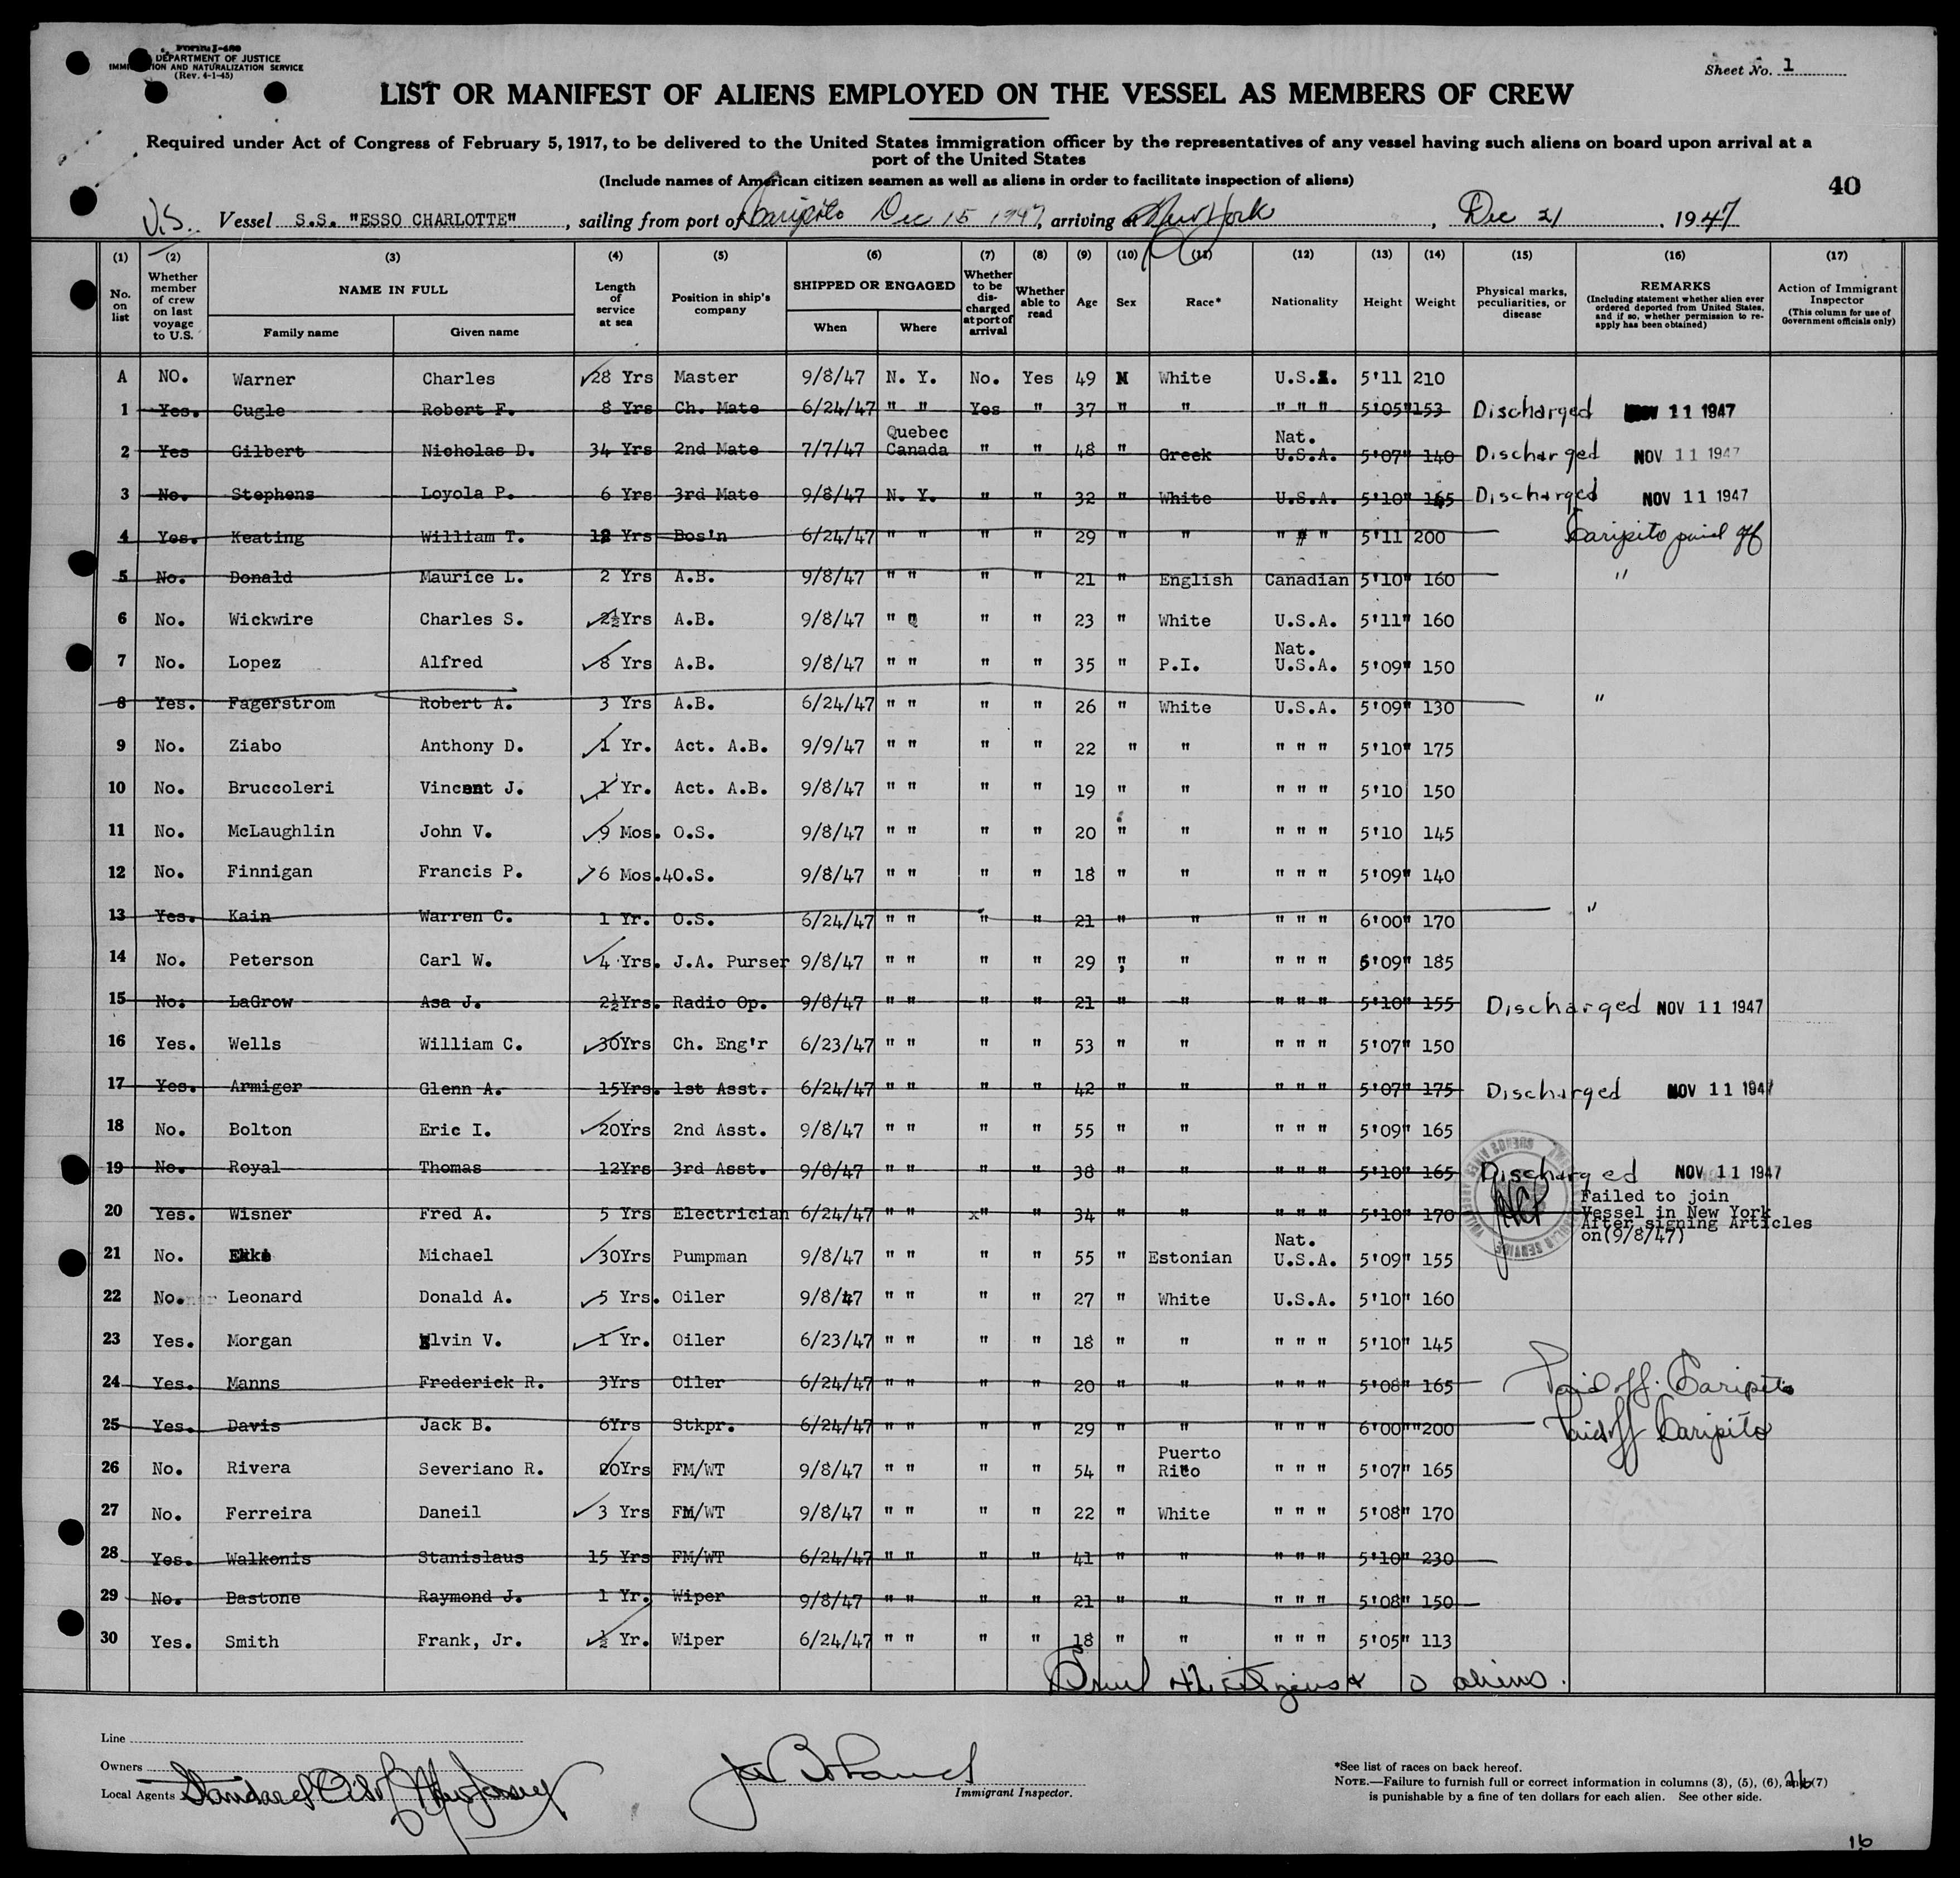 Form I-480
DEPARTMENT OF JUSTICE
IMMIGRATION AND NATURALIZATION SERVICE
(Rev. 4-1-45)
Sheet No. 1
LIST OR MANIFEST OF ALIENS EMPLOYED ON THE VESSEL AS MEMBERS OF CREW
Required under Act of Congress of February 5, 1917, to be delivered to the United States immigration officer by the representatives of any vessel having such aliens on board upon arrival at a
port of the United States
(Include names of American citizen seamen as well as aliens in order to facilitate inspection of aliens)
40
U.S. Vessel S.S. "ESSO CHARLOTTE", sailing from port of Caripito Dec 15 1947, arriving at New York, Dec 21, 1947
(1) (2) (3) (4) (5) (6) (7) (8) (9) (10) (11) (12) (13) (14) (15) (16) (17)
No. on list
Whether member of crew on last voyage to U.S.
NAME IN FULL
Family name Given name
Length of service at sea
Position in ship's company
SHIPPED OR ENGAGED
When Where
Whether to be discharged at port of arrival
Whether able to read
Age
Sex
Race*
Nationality
Height
Weight
Physical marks, peculiarities, or disease
REMARKS
(Including statement whether alien ever ordered deported from United States, and if so, whether permission to reapply has been obtained)
Action of Immigrant Inspector
(This column for use of Government officials only)
A NO. Warner Charles 28 Yrs Master 9/8/47 N. Y. No. Yes 49 M White U.S. 5'11 210
1 Yes. Cugle Robert F. 8 Yrs Ch. Mate 6/24/47 " " Yes " 37 " " " " " 5'05" 153 Discharged NOV 11 1947
2 Yes Gilbert Nicholas D. 34 Yrs 2nd Mate 7/7/47 Quebec Canada " " 48 " Greek Nat. U.S.A. 5'07" 140 Discharged NOV 11 1947
3 No. Stephens Loyola P. 6 Yrs 3rd Mate 9/8/47 N. Y. " " 32 " White U.S.A. 5'10" 165 Discharged NOV 11 1947
4 Yes. Keating William T. 12 Yrs Bos'n 6/24/47 " " " " 29 " " " " " 5'11 200 Caripito paid off
5 No. Donald Maurice L. 2 Yrs A.B. 9/8/47 " " " " 21 " English Canadian 5'10" 160 "
6 No. Wickwire Charles S. 2½Yrs A.B. 9/8/47 " " " " 23 " White U.S.A. 5'11" 160
7 No. Lopez Alfred 8 Yrs A.B. 9/8/47 " " " " 35 " P.I. Nat. U.S.A. 5'09" 150
8 Yes. Fagerstrom Robert A. 3 Yrs A.B. 6/24/47 " " " " 26 " White U.S.A. 5'09" 130 "
9 No. Ziabo Anthony D. 1 Yr. Act. A.B. 9/9/47 " " " " 22 " " " " " 5'10" 175
10 No. Bruccoleri Vincent J. 1 Yr. Act. A.B. 9/8/47 " " " " 19 " " " " " 5'10 150
11 No. McLaughlin John V. 9 Mos. O.S. 9/8/47 " " " " 20 " " " " " 5'10 145
12 No. Finnigan Francis P. 6 Mos.4O.S. 9/8/47 " " " " 18 " " " " " 5'09" 140
13 Yes. Kain Warren C. 1 Yr. O.S. 6/24/47 " " " " 21 " " " " " 6'00" 170 "
14 No. Peterson Carl W. 4 Yrs. J.A. Purser 9/8/47 " " " " 29 " " " " " 5'09" 185
15 No. LaGrow Asa J. 2½Yrs. Radio Op. 9/8/47 " " " " 21 " " " " " 5'10" 155 Discharged NOV 11 1947
16 Yes. Wells William C. 30Yrs Ch. Eng'r 6/23/47 " " " " 53 " " " " " 5'07" 150
17 Yes. Armiger Glenn A. 15Yrs. 1st Asst. 6/24/47 " " " " 42 " " " " " 5'07" 175 Discharged NOV 11 1947
18 No. Bolton Eric I. 20Yrs 2nd Asst. 9/8/47 " " " " 55 " " " " " 5'09" 165
19 No. Royal Thomas 12Yrs 3rd Asst. 9/8/47 " " " " 38 " " " " " 5'10" 165 Discharged NOV 11 1947
20 Yes. Wisner Fred A. 5 Yrs Electrician 6/24/47 " " x" " 34 " " " " " 5'10" 170 Failed to join
Vessel in New York
After signing Articles
on(9/8/47)
21 No. Michael 30Yrs Pumpman 9/8/47 " " " " 55 " Estonian Nat. U.S.A. 5'09" 155
22 No. Leonard Donald A. 5 Yrs. Oiler 9/8/47 " " " " 27 " White U.S.A. 5'10" 160
23 Yes. Morgan Elvin V. 1 Yr. Oiler 6/23/47 " " " " 18 " " " " " 5'10" 145
24 Yes. Manns Frederick R. 3Yrs Oiler 6/24/47 " " " " 20 " " " " " 5'08" 165 Paid off. Caripito
25 Yes. Davis Jack B. 6Yrs Stkpr. 6/24/47 " " " " 29 " " " " " 6'00" "200 Paid off Caripito
26 No. Rivera Severiano R. 20Yrs FM/WT 9/8/47 " " " " 54 " Puerto Rico " " " 5'07" 165
27 No. Ferreira Daneil 3 Yrs FM/WT 9/8/47 " " " " 22 " White " " " 5'08" 170
28 Yes. Walkonis Stanislaus 15 Yrs FM/WT 6/24/47 " " " " 41 " " " " " 5'10" 230
29 No. Bastone Raymond J. 1 Yr. Wiper 9/8/47 " " " " 21 " " " " " 5'08" 150
30 Yes. Smith Frank, Jr. ½ Yr. Wiper 6/24/47 " " " " 18 " " " " " 5'05" 113
0 aliens.
Line
Owners
Local Agents Standard Oil of New Jersey
Immigrant Inspector.
*See list of races on back hereof.
NOTE.—Failure to furnish full or correct information in columns (3), (5), (6), and (7)
is punishable by a fine of ten dollars for each alien. See other side.
16